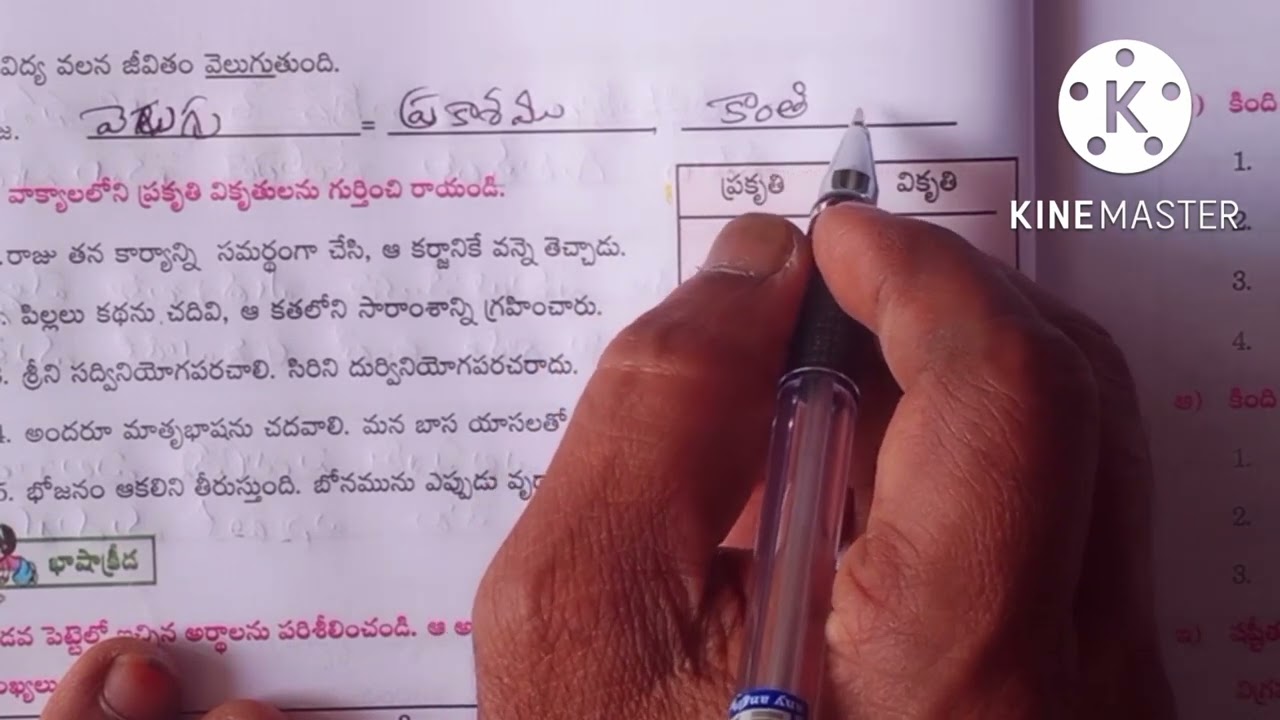 విద్య వలన జీవితం వెలుగుతుంది.
జ. వెలుగు = ప్రకాశము, కాంతి
వాక్యాలలోని ప్రకృతి వికృతులను గుర్తించి రాయండి.
ప్రకృతి వికృతి
రాజు తన కార్యాన్ని సమర్థంగా చేసి, ఆ కర్జానికే వన్నె తెచ్చాడు.
పిల్లలు కథను చదివి, ఆ కతలోని సారాంశాన్ని గ్రహించారు.
శ్రీని సద్వినియోగపరచాలి. సిరిని దుర్వినియోగపరచరాదు.
4. అందరూ మాతృభాషను చదవాలి. మన బాస యాసలతో
5. భోజనం ఆకలిని తీరుస్తుంది. బోనమును ఎప్పుడు
భాషాక్రీడ
పెట్టెలో అర్థాలను పరిశీలించండి. ఆ
KINEMASTER
K
కింది
1.
2.
3.
4.
ఆ) కింది
1.
2.
3.
ఇ)